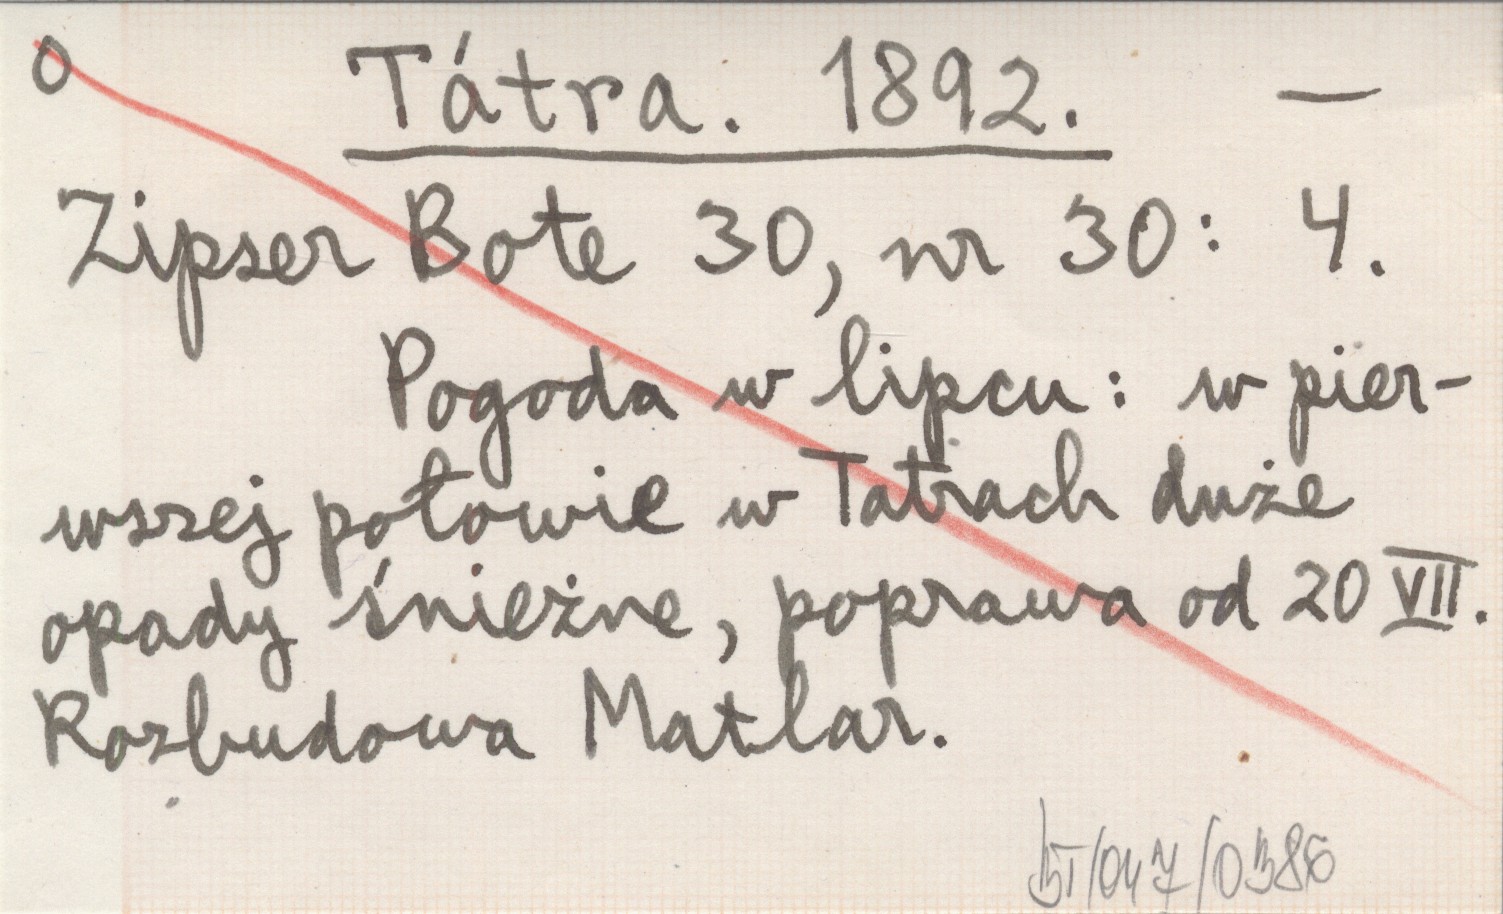 O Tátra. 1892. —
Zipser Bote 30, nr 30: 4.
Pogoda w lipcu: w pier-
wszej połowie w Tatrach duże
opady śnieżne, poprawa od 20 VII.
Rozbudowa Matlar.
BT/047/0386